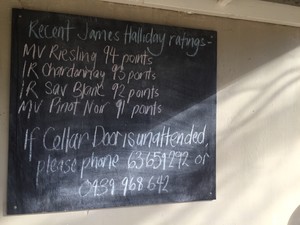 Recent James Halliday ratings-
MV Riesling 94 points
IR Chardonnay 93 points
IR Sav Blanc 92 points
MV Pinot Noir 91 points
If Cellar Door is unattended,
please phone 63659292 or
0439 968 642